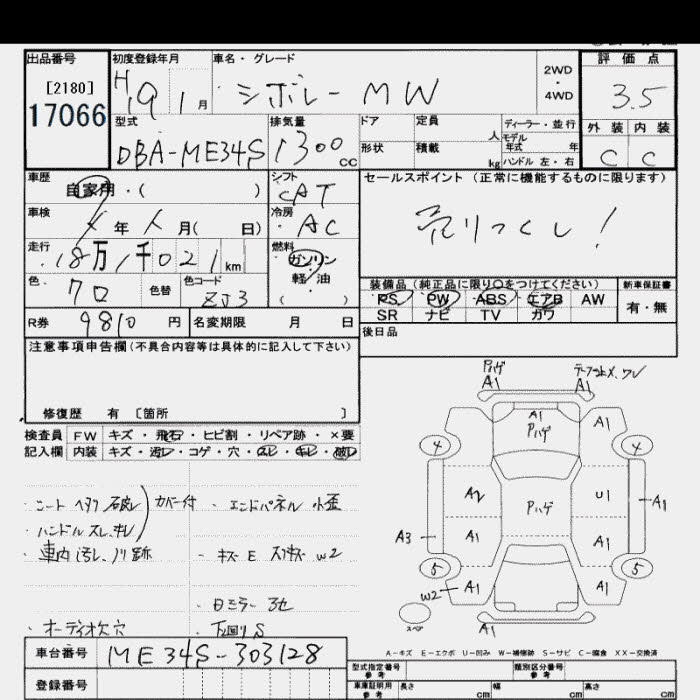 出品番号
[2180]
17066
初度登録年月
H19 1月
車名・グレード
シボレー MW
2WD
・
4WD
評価点
3.5
外装 内装
C C
型式
DBA-ME34S
排気量
1300cc
ドア
定員 人
形状
積載 kg
ディーラー・並行
モデル年式 年
ハンドル 左・右
車歴
自家用・( )
シフト
CAT
車検
年 月( 日)
冷房
AC
走行
18万1千021km
燃料
ガソリン
軽・油
( )
色
色替
色コード
ZJ3
R券 9810 円
名変期限 月 日
セールスポイント (正常に機能するものに限ります)
売りつくし!
装備品 (純正品に限り○をつけてください)
PS PW ABS エアB AW
SR ナビ TV カワ
新車保証書
有・無
後日品
注意事項申告欄(不具合内容等は具体的に記入して下さい)
修復歴 有 〔箇所 〕
検査員 FW キズ・飛石・ヒビ割・リペア跡・×要
記入欄 内装 キズ・汚レ・コゲ・穴・スレ・キレ・破レ
・シート ヘタリ 破レ
カバー付
・エンドパネル 小歪
・ハンドル スレ、キレ
・車内 汚レ、ノリ跡
・キズ E スリキズ W2
・日ミラー
・オーディオ欠 穴
・下回り S
車台番号 ME34S-303128
登録番号
Pハゲ
A1
A1
A1
Pハゲ
A1
4
4
A2
Pハゲ
U1
A1
A3
A1
A1
5
5
W2
A1
A1
スペア
A1
A-キズ E-エクボ U-凹み W-補修跡 S-サビ C-腐食 XX-交換済
型式指定番号
参考
類別区分番号
参考
車庫証明用
参考
長さ cm
幅 cm
高さ cm